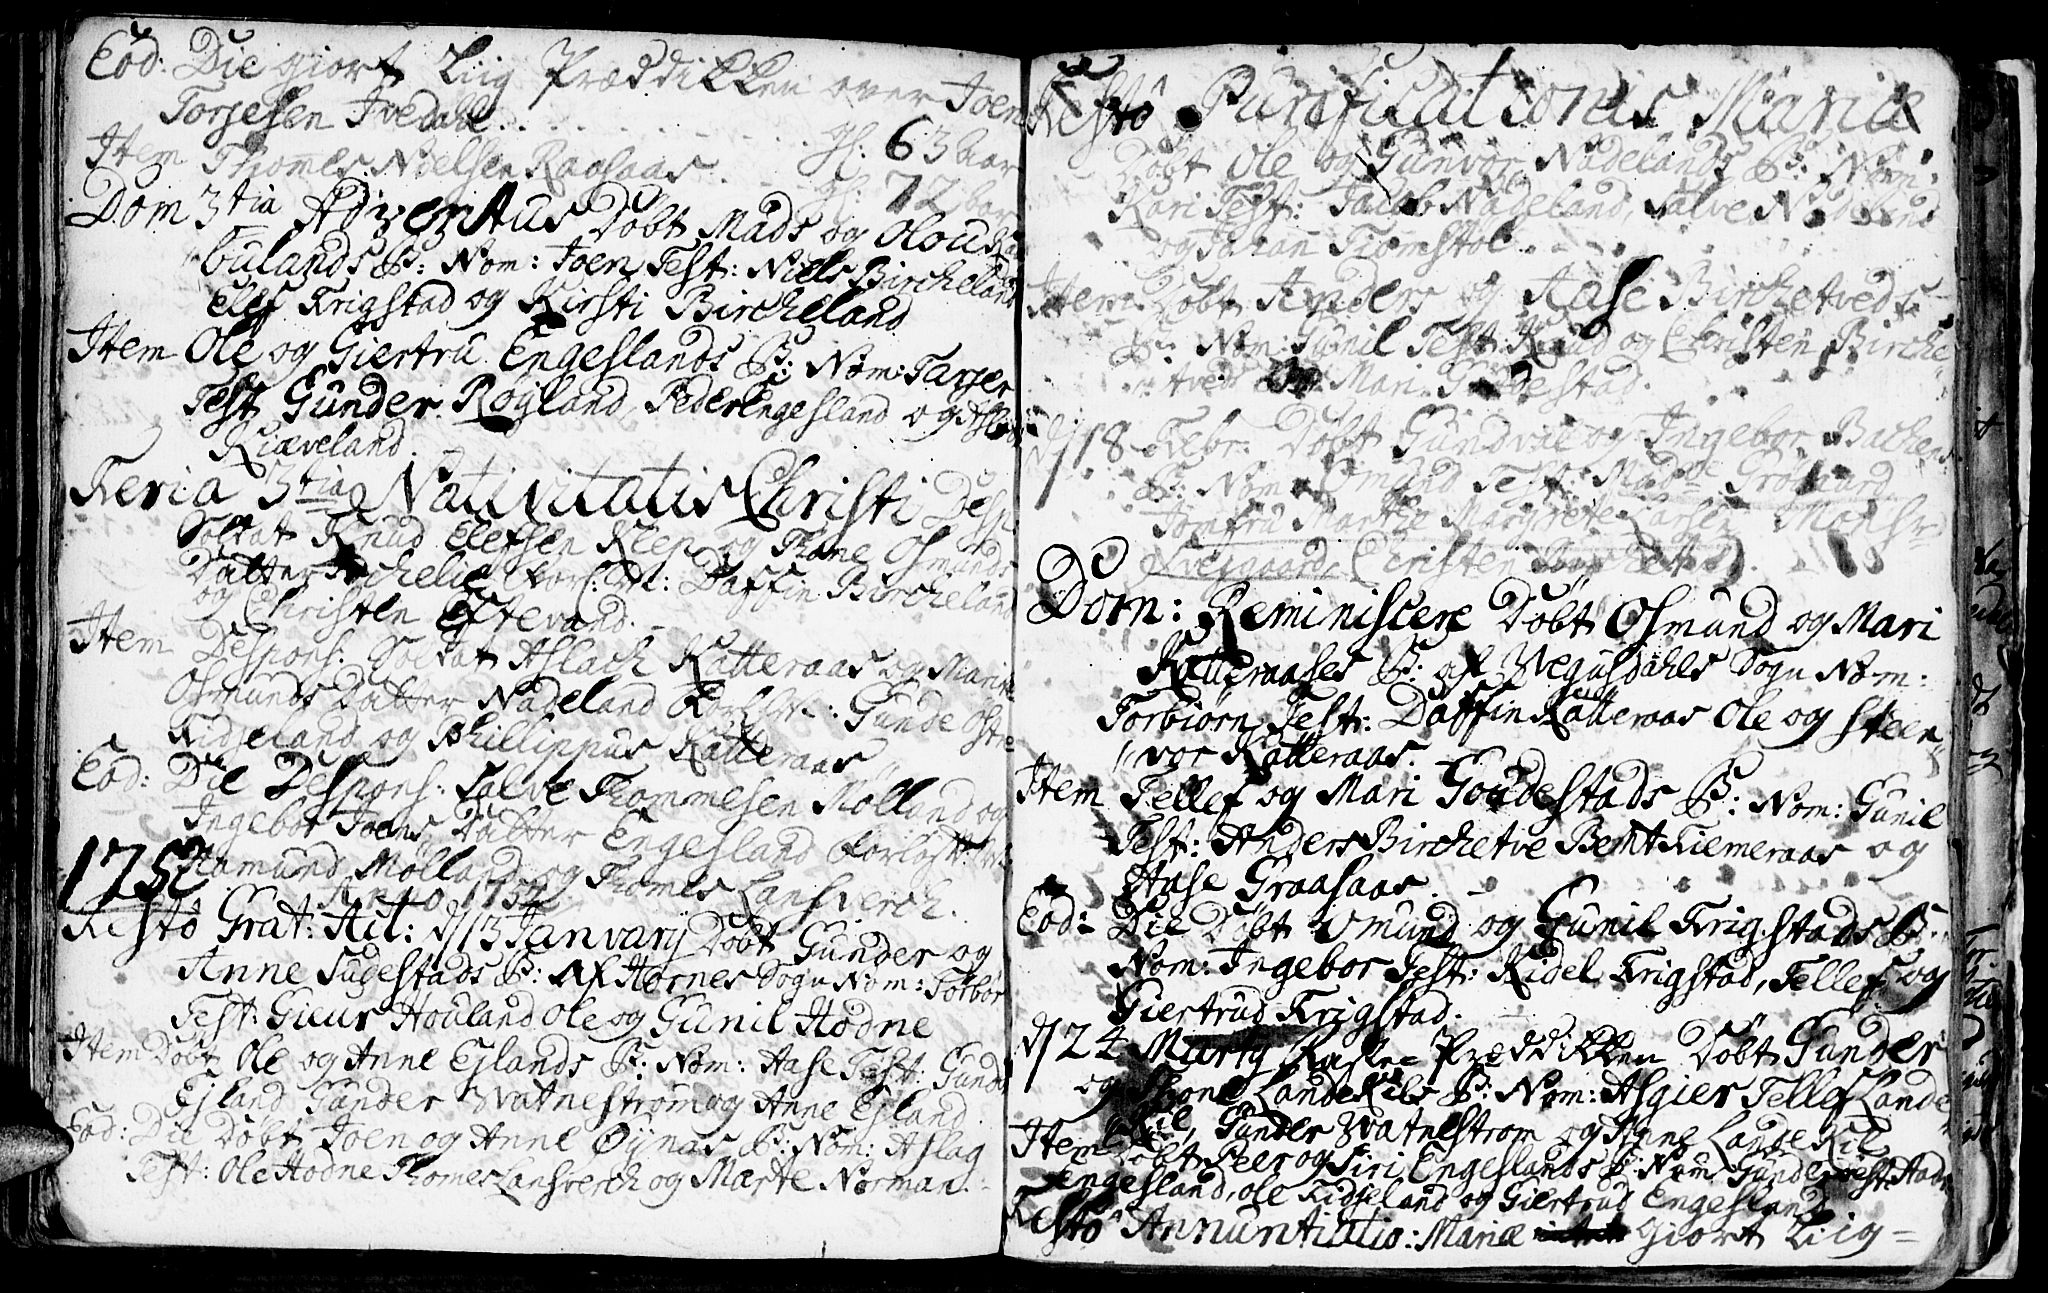 Eod: Die giort Liig Præddikken over Joen
Torjesen Ivedahl . . . . . . .
Item Thommes Nielsen Raasaas . . gl: 63 aar
gl: 72 aar
Dom 3tia Adventus Døbt Mads og Olou
bulands B: Nom: Joen, Test: Niels Bircheland
Elef Frigstad og Kirsti Bircheland
Item Ole og Giertru Engeslands B: Nom: Tarjer
Test Gunder Røgland, Peder Engesland og
Kiæveland.
Feria 3tia Nativitatis Christi Desp:
Soldat Knud Elefsen Klep og Thone Osmunds
Datter Forl: Daffin Bircheland
og Christen Eftevand.
Item Despons: Soldat Aslach Katteraas og Mari
Osmunds Datter Nadeland Gunde
Kidjeland og Phillippus Katteraas
Eod: Die Despons: Salve Thommesen Molland og
Ingebor Joens Datter Engesland
Aamund Molland og Thomes Lansverch.
1752
Anno 1752
Festo Grat: Act: d/13 Janvarij Døbt Gunder og
Anne Sudestads B: Af Hornes Sogn Nom: Torbor
Test: Gieur Houland Ole og Gunil Hodne
Item Døbt Ole og Anne Ejlands B: Nom: Aase Test: Gunder
Ejland Gunder Watnestrøm og Anne Ejland
Eod: Die Døbt Joen og Anne Øynas B: Nom: Aslag
Test: Ole Hodne Thomes Lansverch og Marte Norman.
Festo Purificationis Mariæ
Døbt Ole og Gunvor Nadelands B: Nom:
Kari Test: Jacob Nadeland, Salve Nadeland
og Johan Tiomstøl.
Item Døbt Anders og Aase Birchetveds
B: Nom: Gunil Test: Knud og Christen Birche
tved og Mari
d/18 Febr. Døbt Gundval og Ingebor
B: Nom: Omund Test: Mad:
Jomfru Marthe Margrete Larsen Monsr
Qveigaard, Christen
Dom: Reminiscere Døbt Osmund og Mari
Katteraases B: af Wegusdahls Sogn Nom:
Torbiørn, Test: Daffin Katteraas Ole og Steen
vor Katteraas.
Item Tellef og Mari Goudestads B: Nom: Gunil
Test: Anders Birchetve Bent Kiemeraas og
Aase Graasaas.
Eod: Die Døbt Omund og Gunil Frigstads B:
Nom: Ingebor Test: Kidel Frigstad, Tellef og
Giertrud Frigstad.
d/24 Marty Faste Præddikken Døbt Gunder
og Thone LandeKiils B: Nom: Asgier Tellef Lande
Kiil, Gunder Watnestrøm og Anne LandeKiil
Item Døbt Peer og Siri Engeslands B: Nom: Gunder Test:
Engesland, Ole Kidjeland og Giertrud Engesland
Festo Annuntiatio: Mariæ Giort Liig=